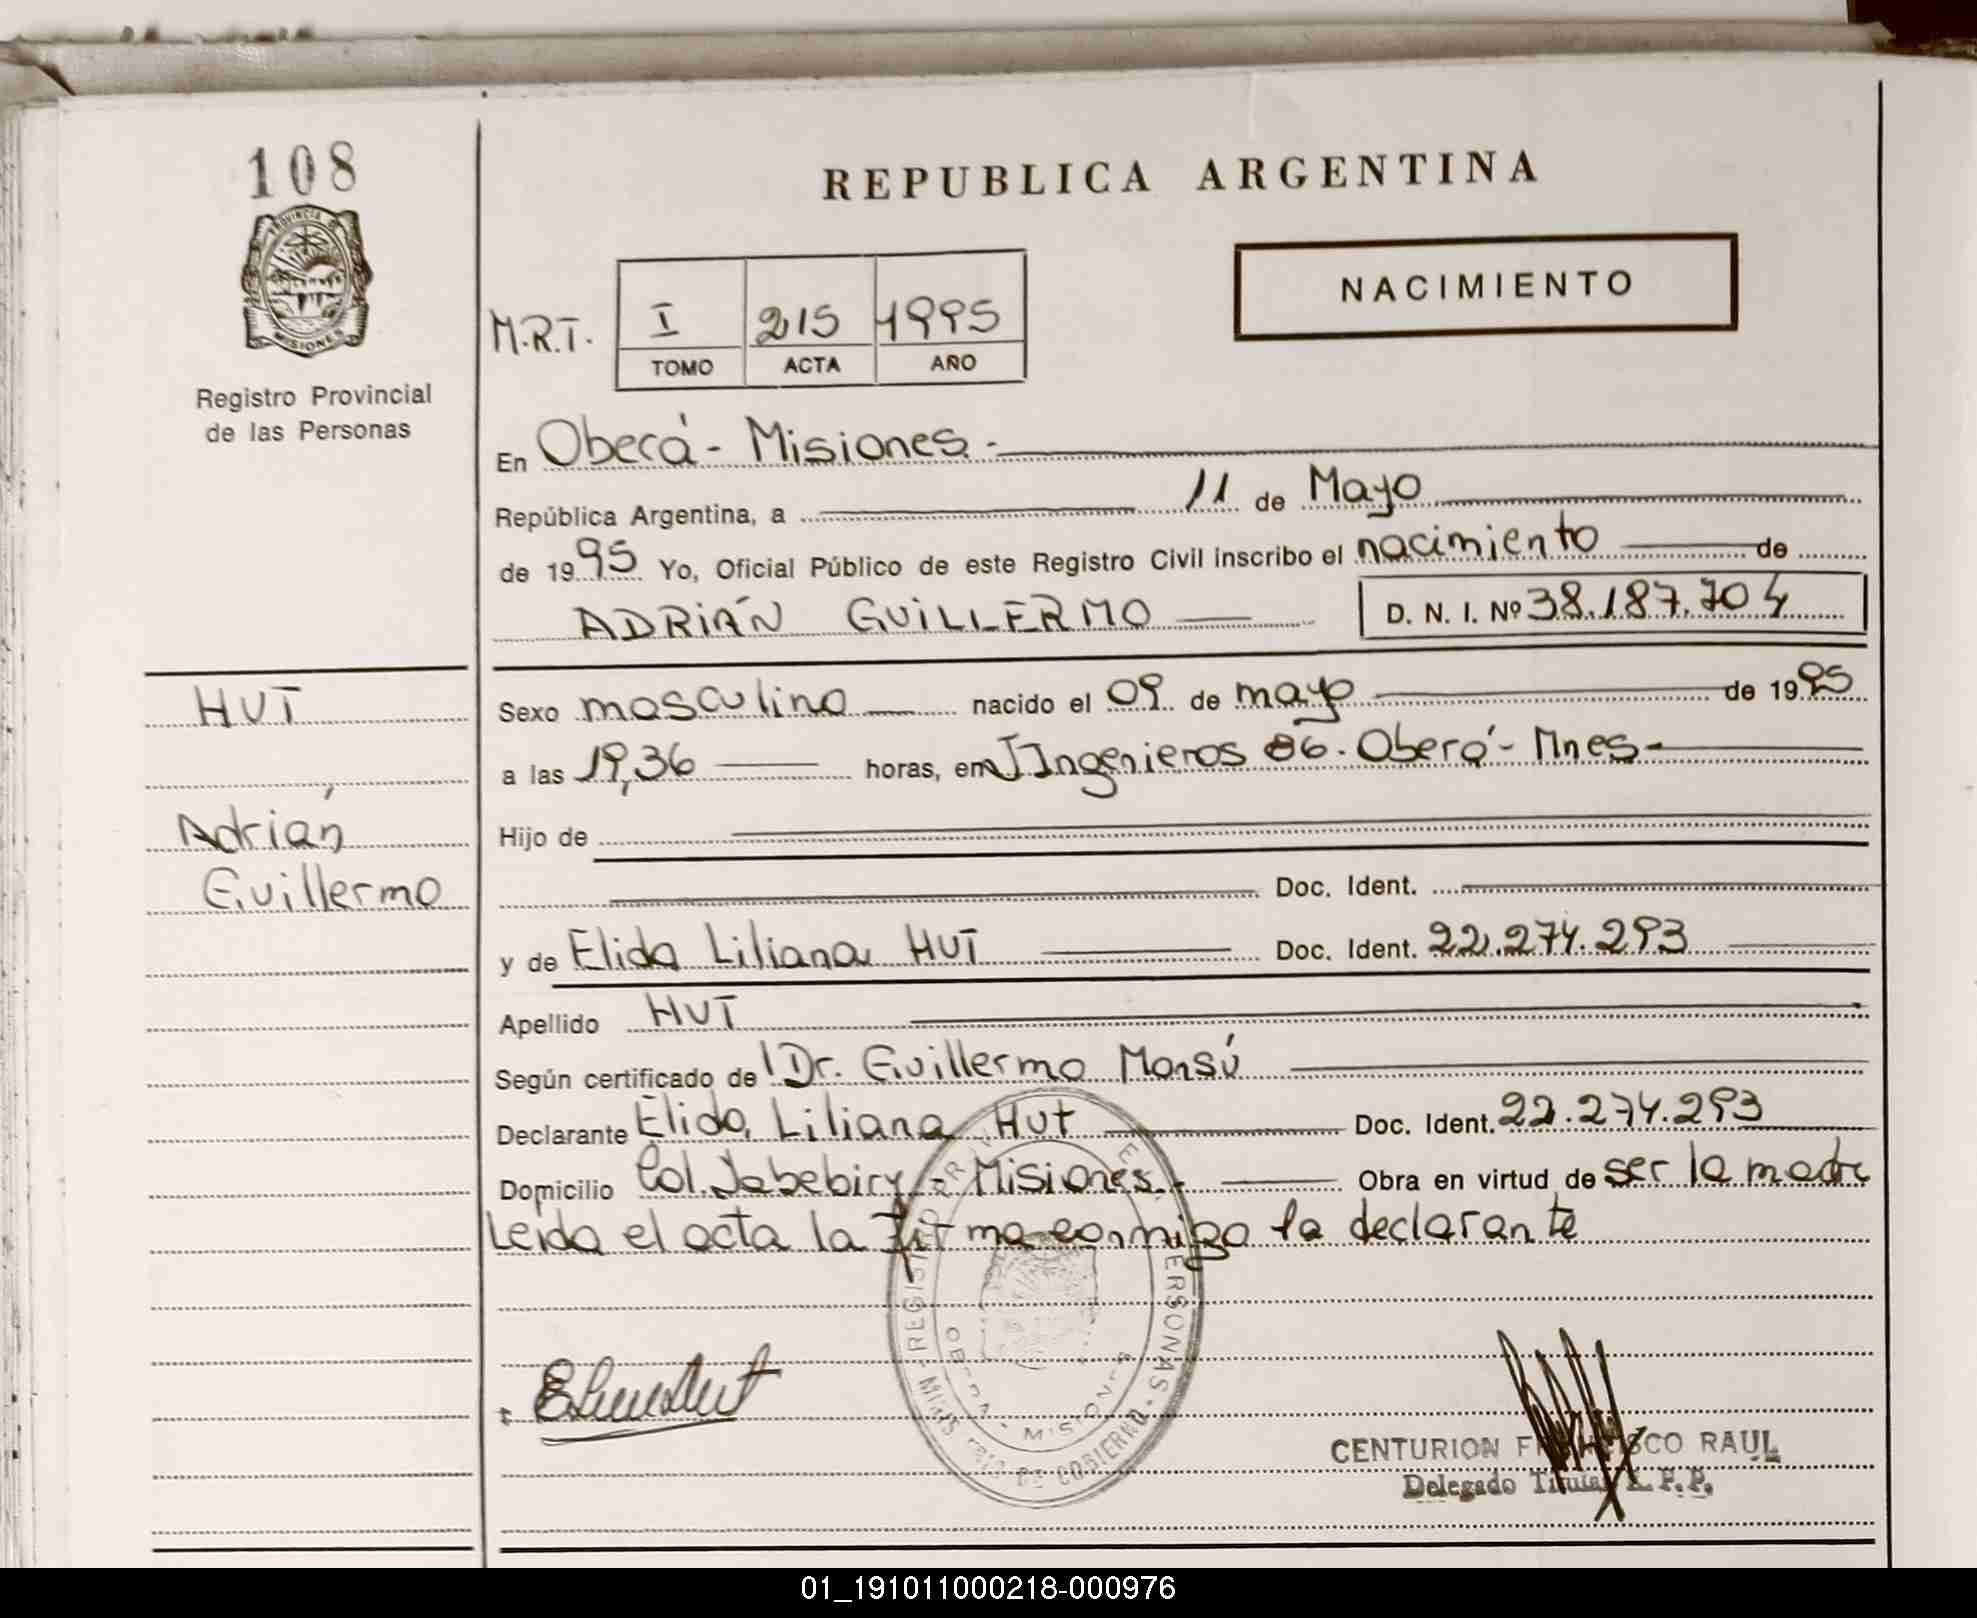 108
PROVINCIA DE
MISIONES
Registro Provincial
de las Personas
REPUBLICA ARGENTINA
NACIMIENTO
M.R.T. I 215 1995
TOMO ACTA AÑO
En Oberá - Misiones.-
República Argentina, a 11 de Mayo
de 1995 Yo, Oficial Público de este Registro Civil inscribo el nacimiento de
ADRIÁN GUILLERMO D. N. I. Nº 38.187.704
HUT
Adrián
Guillermo
Sexo masculino nacido el 09 de mayo de 1995
a las 19,36 horas, en J Ingenieros 86. Oberá - Mnes-
Hijo de
Doc. Ident.
y de Elida Liliana HUT Doc. Ident. 22.274.293
Apellido HUT
Según certificado del Dr. Guillermo Monsú
Declarante Elida Liliana Hut Doc. Ident. 22.274.293
Domicilio Col. Jabebiry - Misiones.- Obra en virtud de ser la madre
Leida el acta la firma conmigo la declarante
OBERA - MISIONES
CENTURION FRANCISCO RAUL
Delegado Titular R. P. P.
01_191011000218-000976